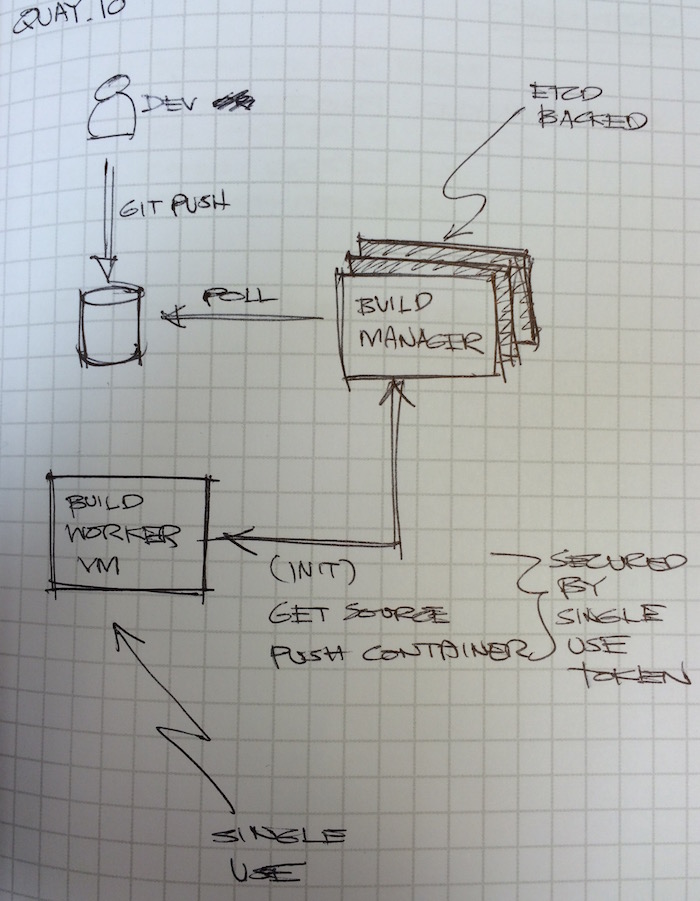 QUAY.IO
DEV
ETCD
BACKED
GIT PUSH
POLL
BUILD
MANAGER
BUILD
WORKER
VM
(INIT)
GET SOURCE
PUSH CONTAINER
SECURED
BY
SINGLE
USE
TOKEN
SINGLE
USE